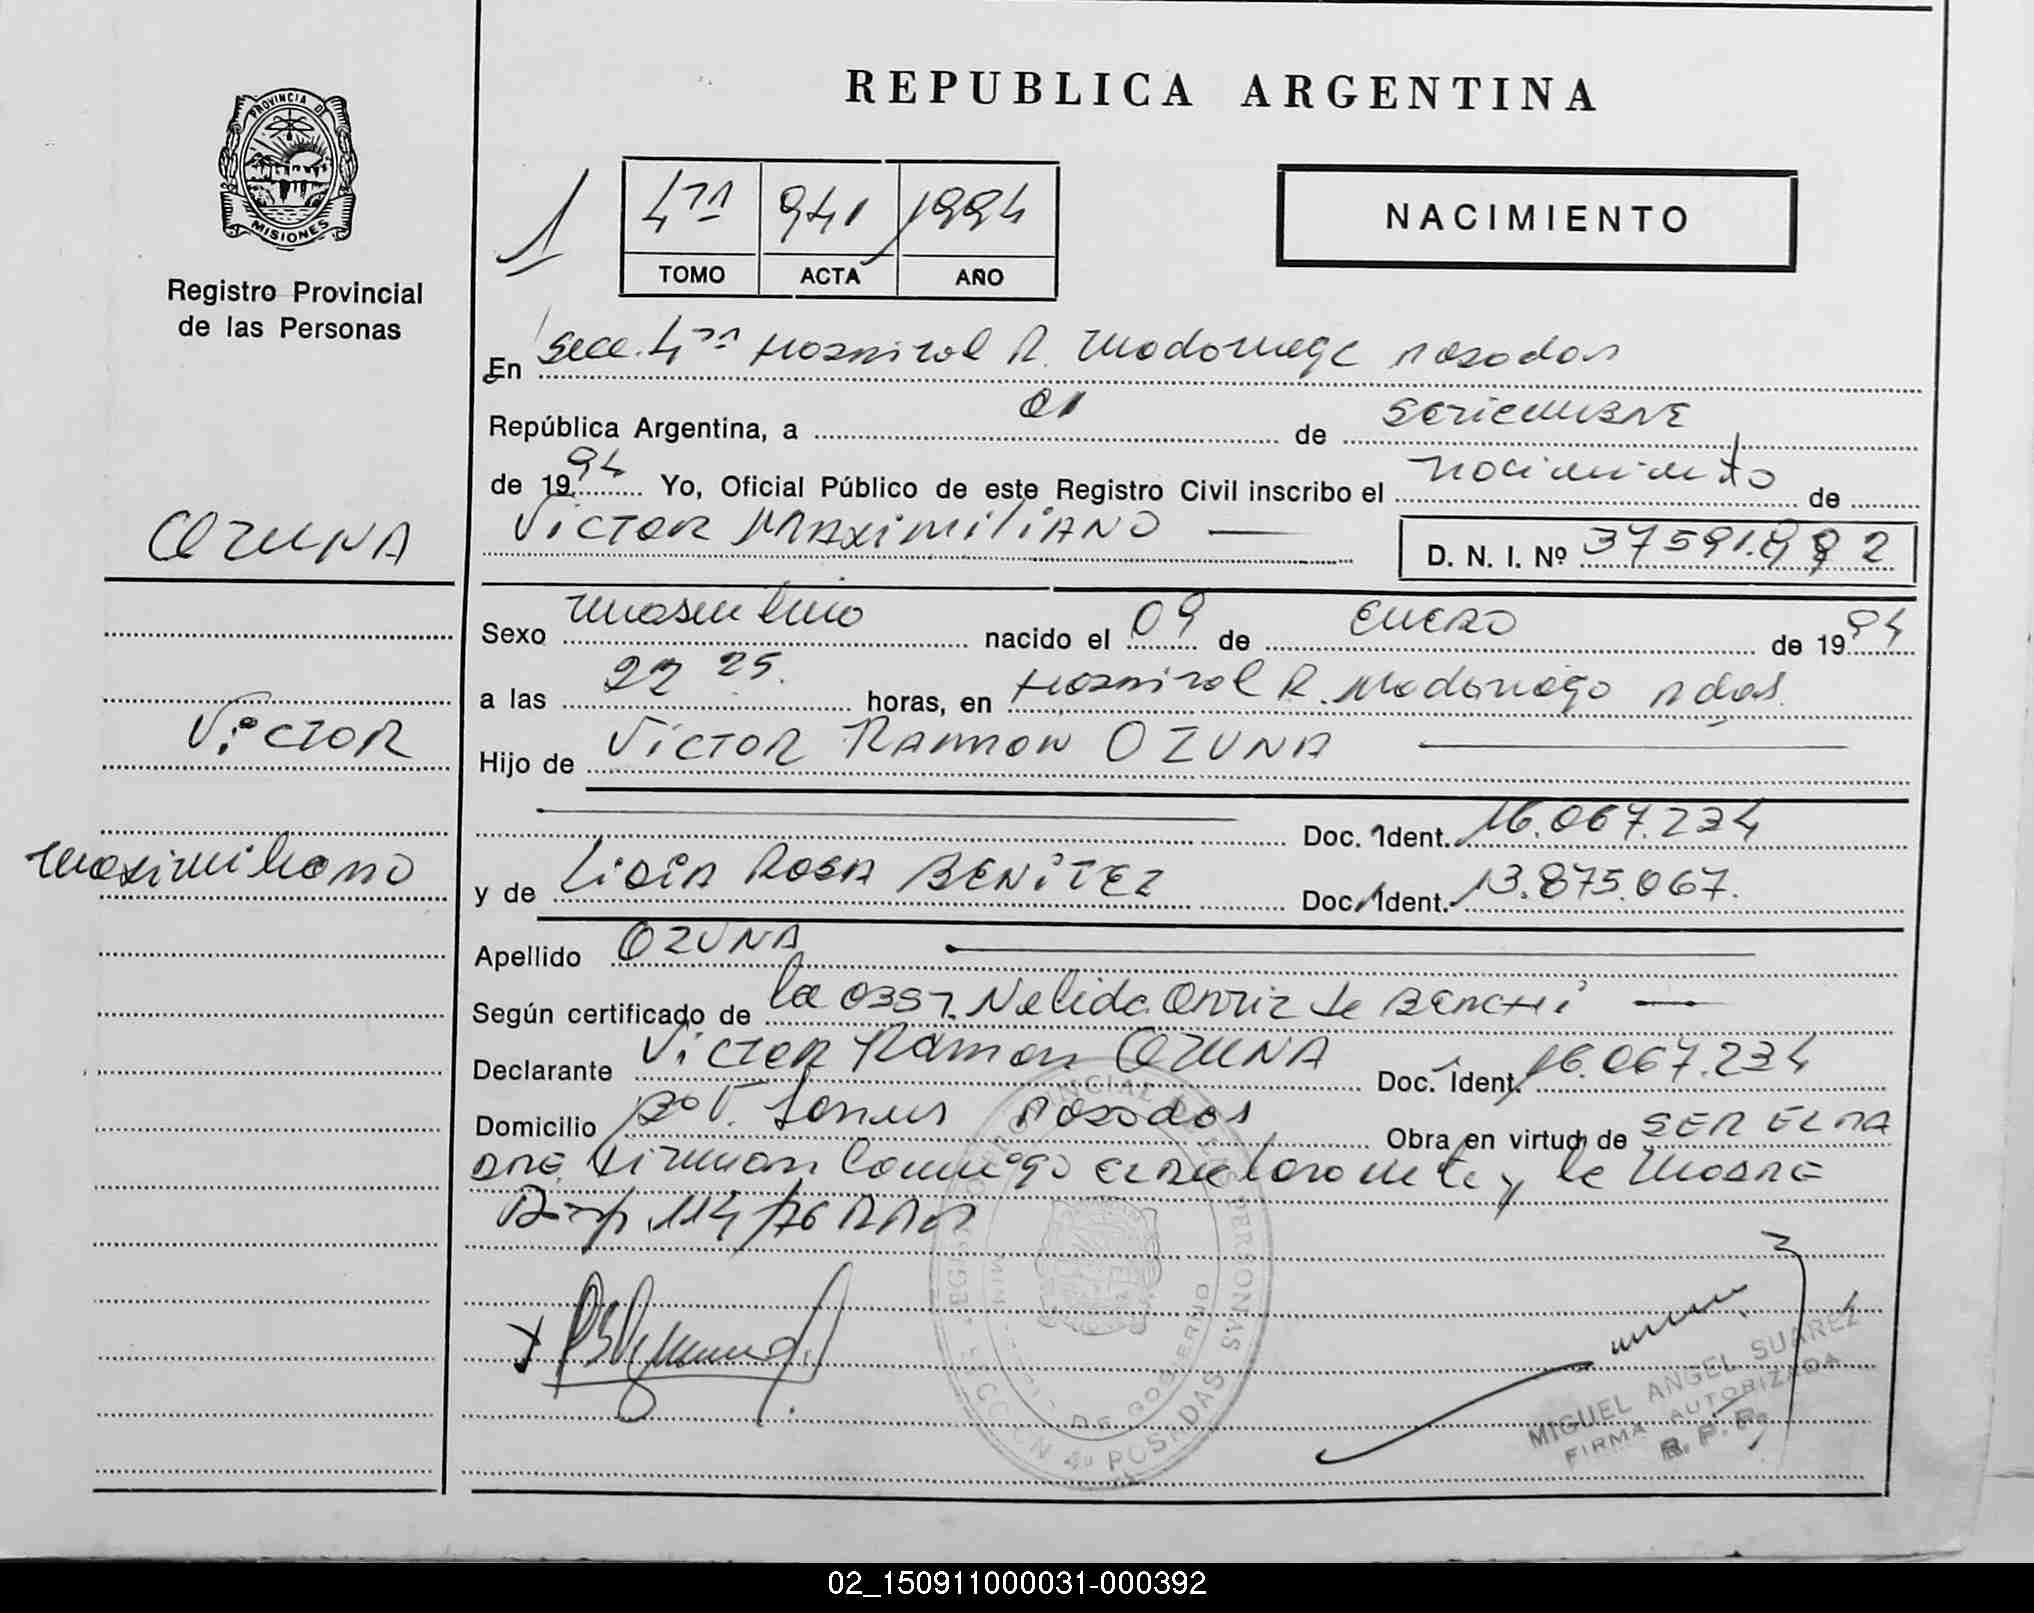 REPUBLICA ARGENTINA
PROVINCIA DE
MISIONES
Registro Provincial
de las Personas
1
4ta 941 1994
TOMO ACTA AÑO
NACIMIENTO
En Secc. 4ta Hospital R. Madariaga Posadas
República Argentina, a 01 de SETIEMBRE
de 1994 Yo, Oficial Público de este Registro Civil inscribo el nacimiento de
VICTOR MAXIMILIANO
D. N. I. Nº 37591.892
OZUNA
VICTOR
Maximiliano
Sexo Masculino nacido el 09 de ENERO de 1994
a las 22 25. horas, en Hospital R. Madariaga Pdas.
Hijo de VICTOR RAMON OZUNA
Doc. Ident. 16.067.234
y de LIDIA ROSA BENITEZ Doc. Ident. 13.875.067.
Apellido OZUNA
Según certificado de la OBST. Nelida Ortiz de BENCHI
Declarante Victor Ramon OZUNA Doc. Ident. 16.067.234
Domicilio Bº V. Lanus Posadas Obra en virtud de SER EL PA
DRE Firman Conmigo el declarante y la MADRE
Disp. 114/76
REGISTRO PROVINCIAL DE LAS PERSONAS
MINISTERIO DE GOBIERNO
SECCION 4a POSADAS
MIGUEL ANGEL SUAREZ
FIRMA AUTORIZADA
R. P. P.
02_150911000031-000392